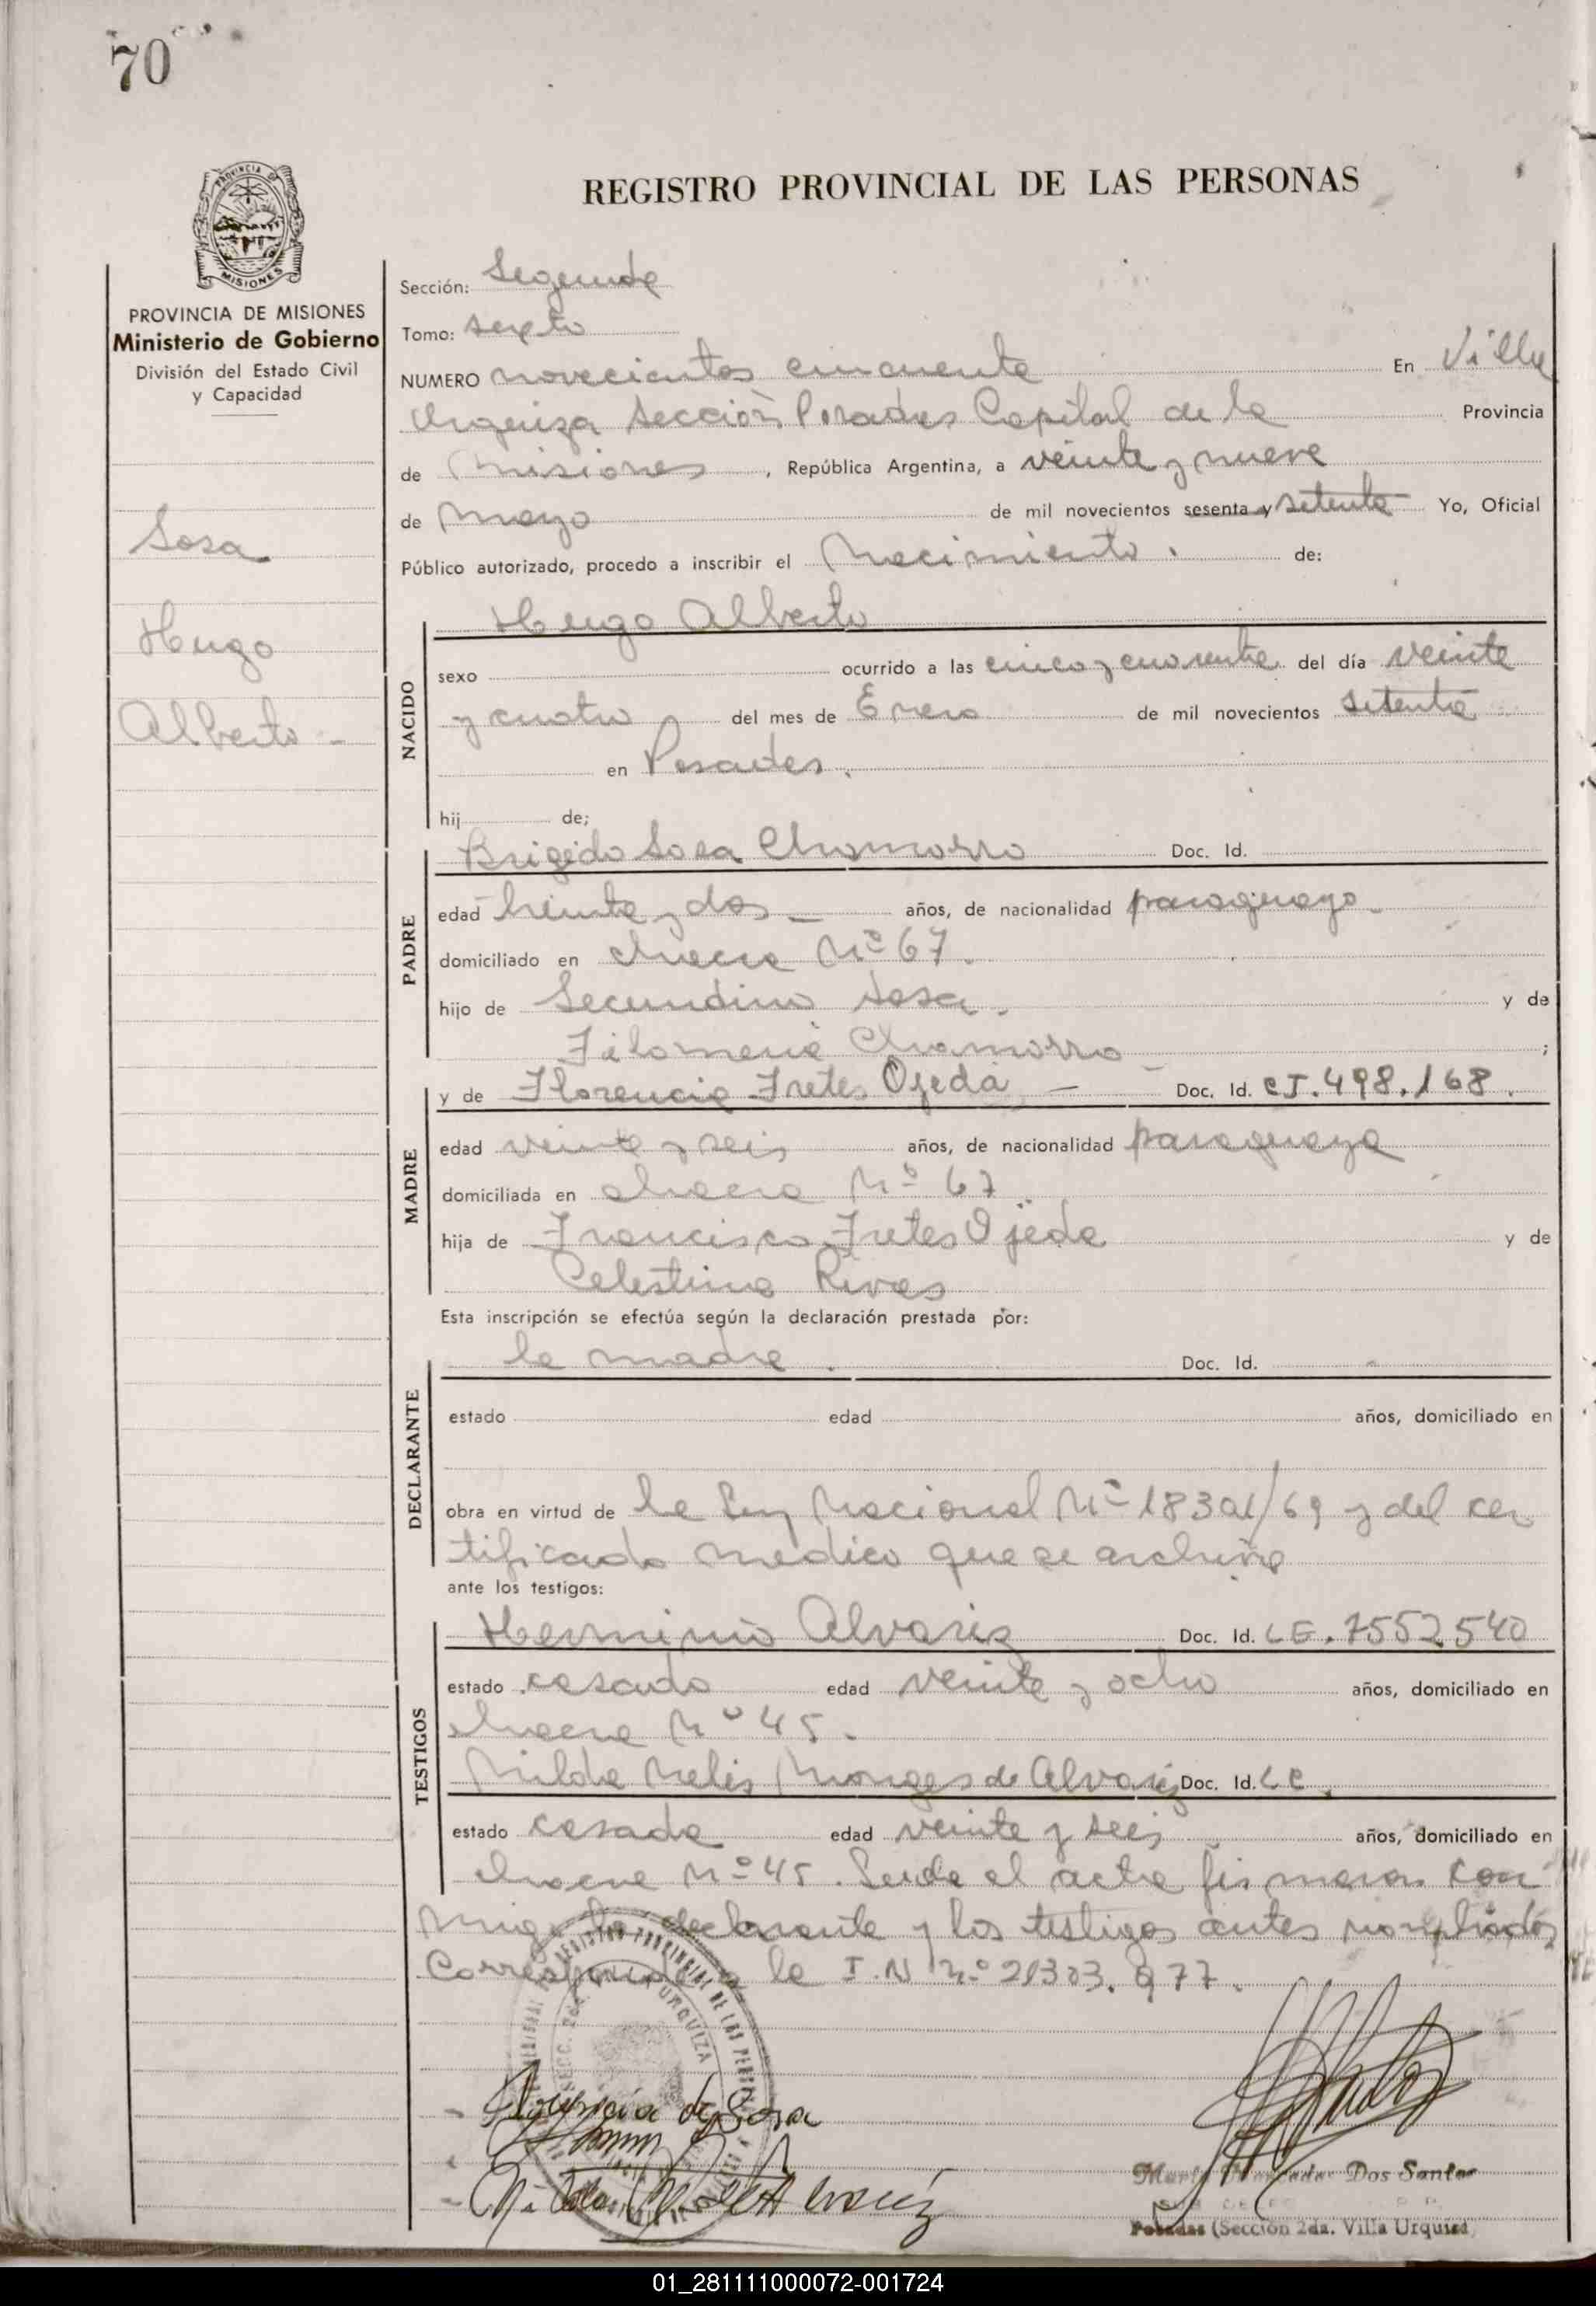 70
REGISTRO PROVINCIAL DE LAS PERSONAS
PROVINCIA DE MISIONES
MISIONES
PROVINCIA DE MISIONES
Ministerio de Gobierno
División del Estado Civil
y Capacidad
Sosa
Hugo
Alberto -
Sección: Segunda
Tomo: sexto
NUMERO novecientos cincuenta En Villa
Urquiza Sección Posadas Capital de la Provincia
de Misiones, República Argentina, a veinte y nueve
de Mayo de mil novecientos sesenta y setenta Yo, Oficial
Público autorizado, procedo a inscribir el Nacimiento. de:
NACIDO
Hugo Alberto
sexo ocurrido a las cinco y cuarenta del día veinte
y cuatro del mes de Enero de mil novecientos setenta
en Posadas.
hij de;
PADRE
Brigido Sosa Chamorro Doc. Id.
edad treinta y dos - años, de nacionalidad paraguayo -
domiciliado en chacra Nº 67.
hijo de Secundino Sosa. y de
Filomena Chamorro ;
MADRE
y de Florencia Fretes Ojeda - Doc. Id. CI. 498.168.
edad veinte y seis años, de nacionalidad paraguaya
domiciliada en chacra Nº 67
hija de Francisco Fretes Ojeda y de
Celestina Rivas
Esta inscripción se efectúa según la declaración prestada por:
DECLARANTE
la madre. Doc. Id.
estado edad años, domiciliado en
obra en virtud de la Ley Nacional Nº 18301/69 y del cer
tificado medico que se archiva
ante los testigos:
TESTIGOS
Herminio Alvarez Doc. Id. LE. 7552540
estado casado edad veinte y ocho años, domiciliado en
chacra Nº 45.
Nilda Nelis Monges de Alvarez Doc. Id. LC.
estado casada edad veinte y seis años, domiciliado en
chacra Nº 45. Leida el acta firmaron con
migo la declarante y los testigos antes nombrados
Corresponde a la I.N nº 21303.977.
Florencia de Sosa
Dos Santos
Posadas (Sección 2da. Villa Urquiza)
01_281111000072-001724